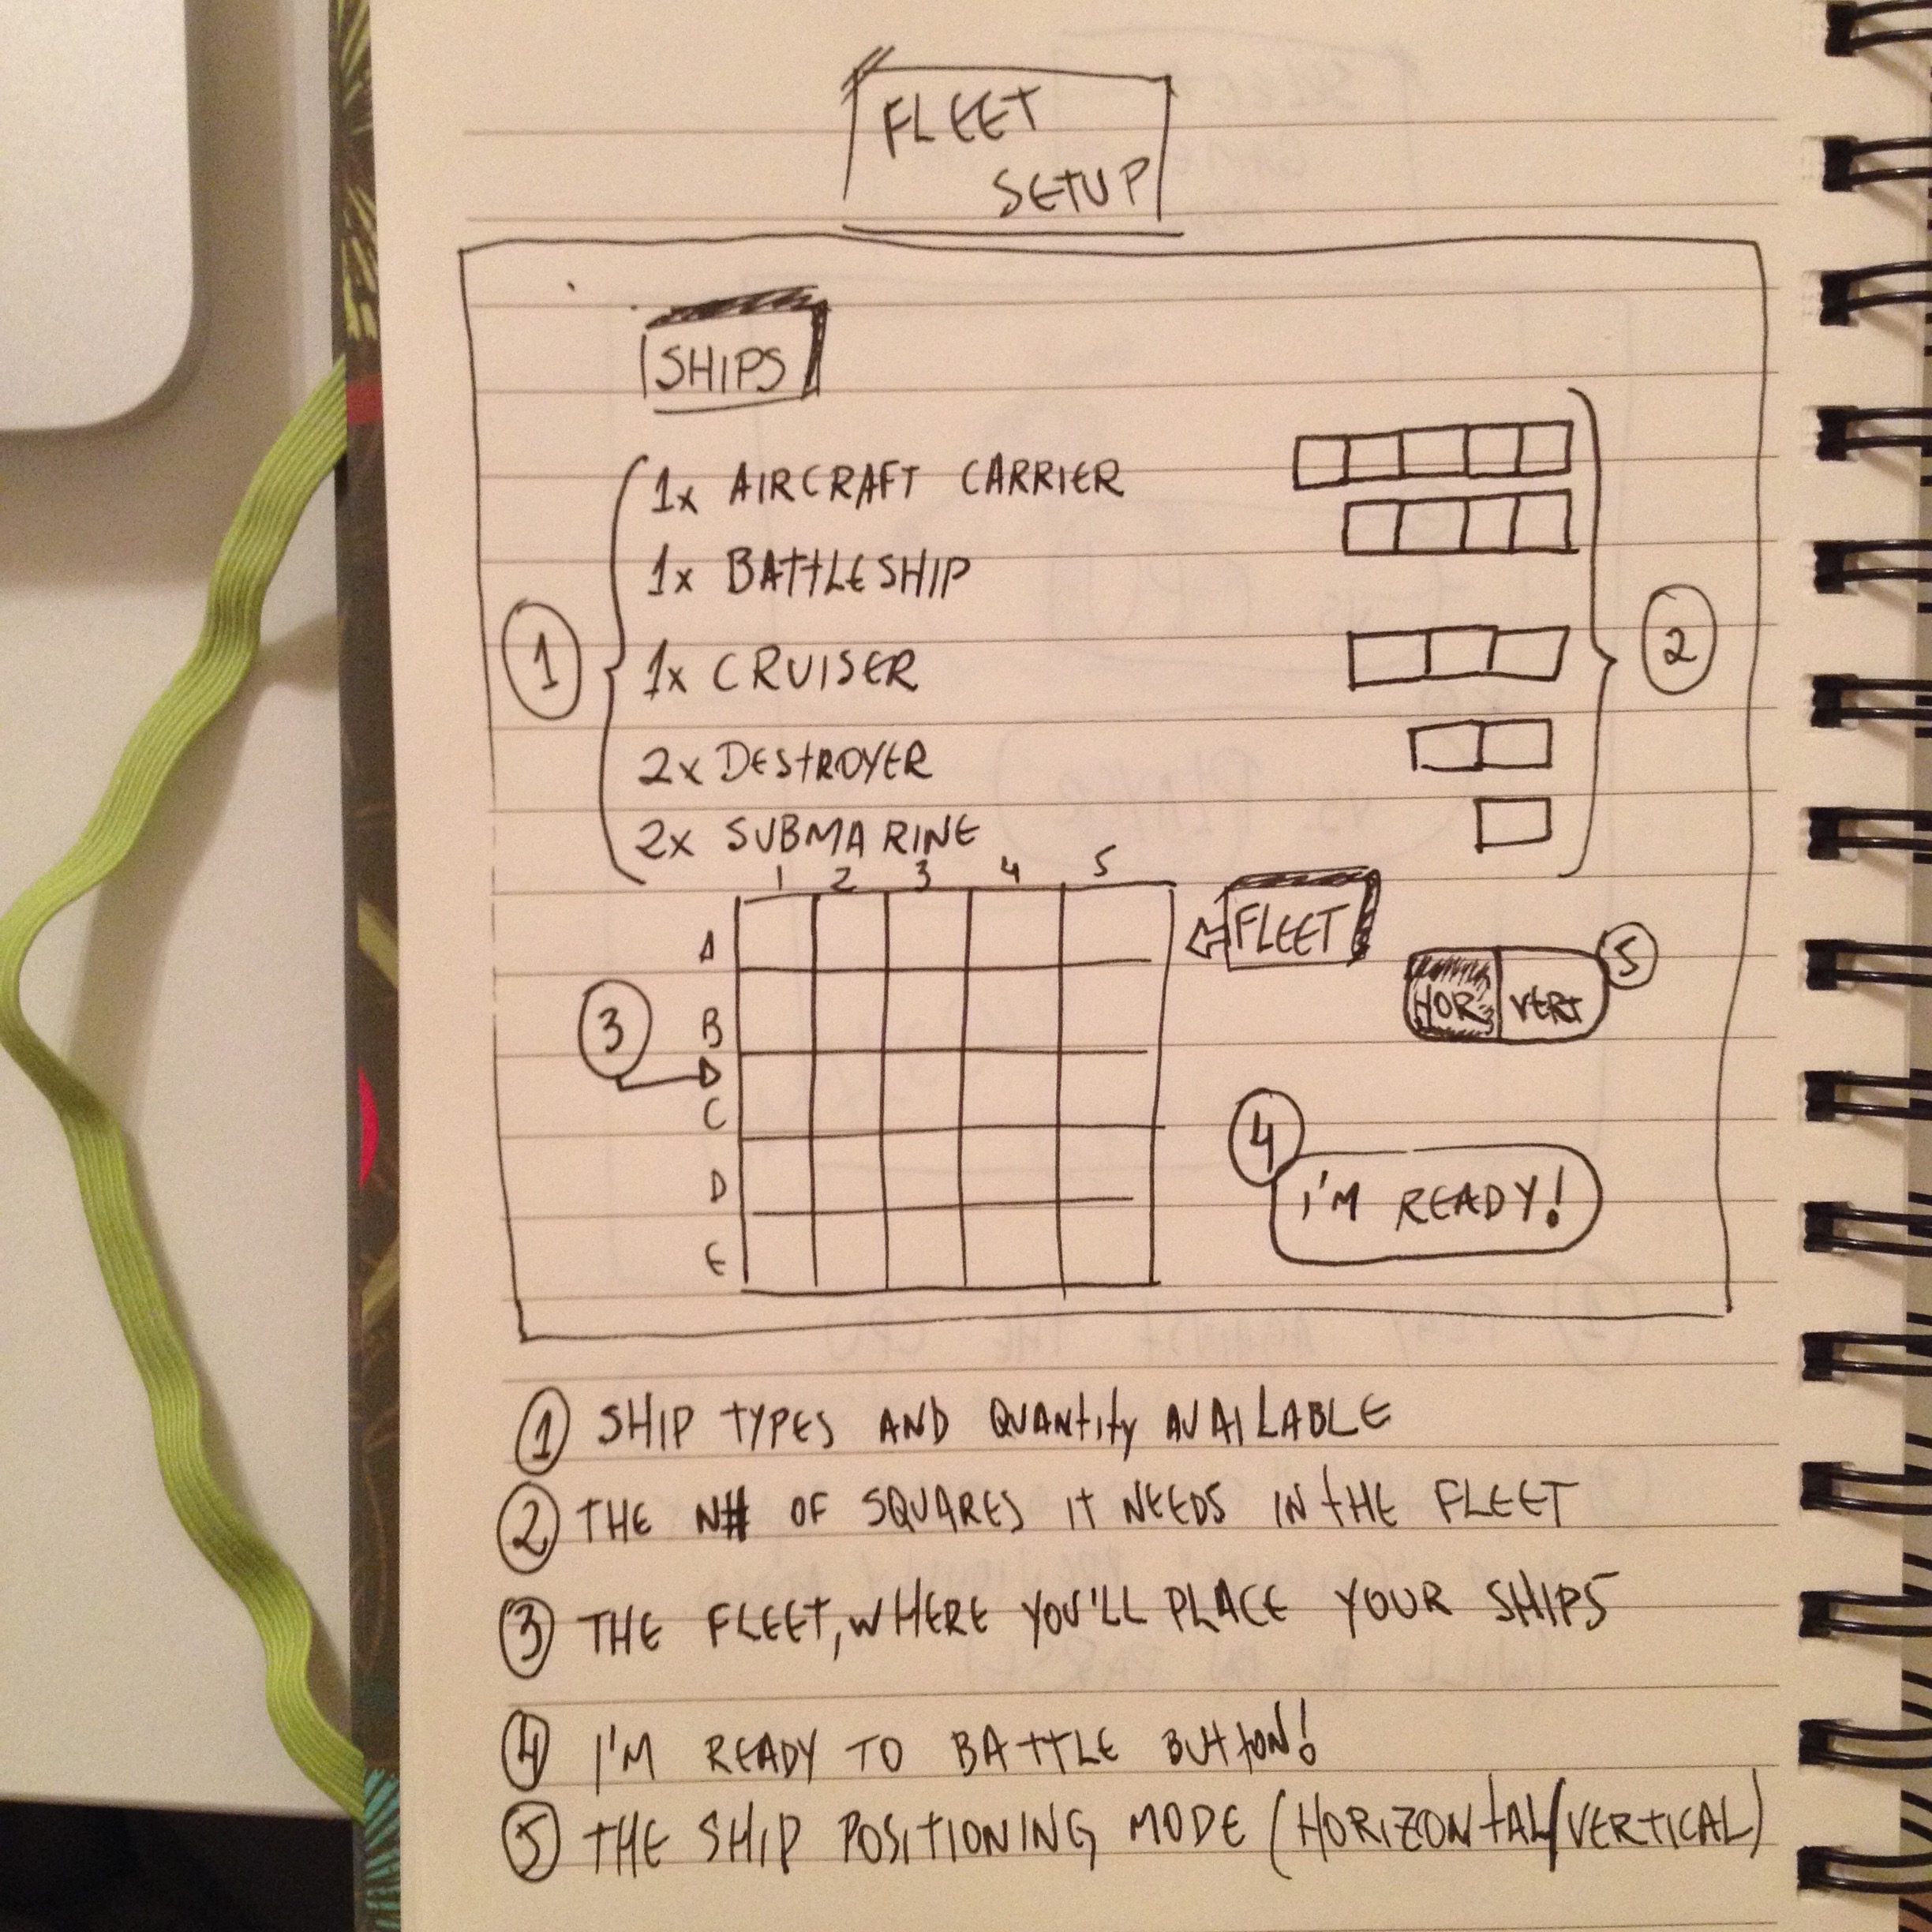 FLEET
SETUP
SHIPS
1x AIRCRAFT CARRIER
1x BATTLESHIP
1 2
1x CRUISER
2x DESTROYER
2x SUBMARINE
1 2 3 4 5
FLEET
A
HOR VERT 5
3 B
C
4
I'M READY!
D
E
1 SHIP TYPES AND QUANTITY AVAILABLE
2 THE N# OF SQUARES IT NEEDS IN THE FLEET
3 THE FLEET, WHERE YOU'LL PLACE YOUR SHIPS
4 I'M READY TO BATTLE BUTTON!
5 THE SHIP POSITIONING MODE (HORIZONTAL/VERTICAL)